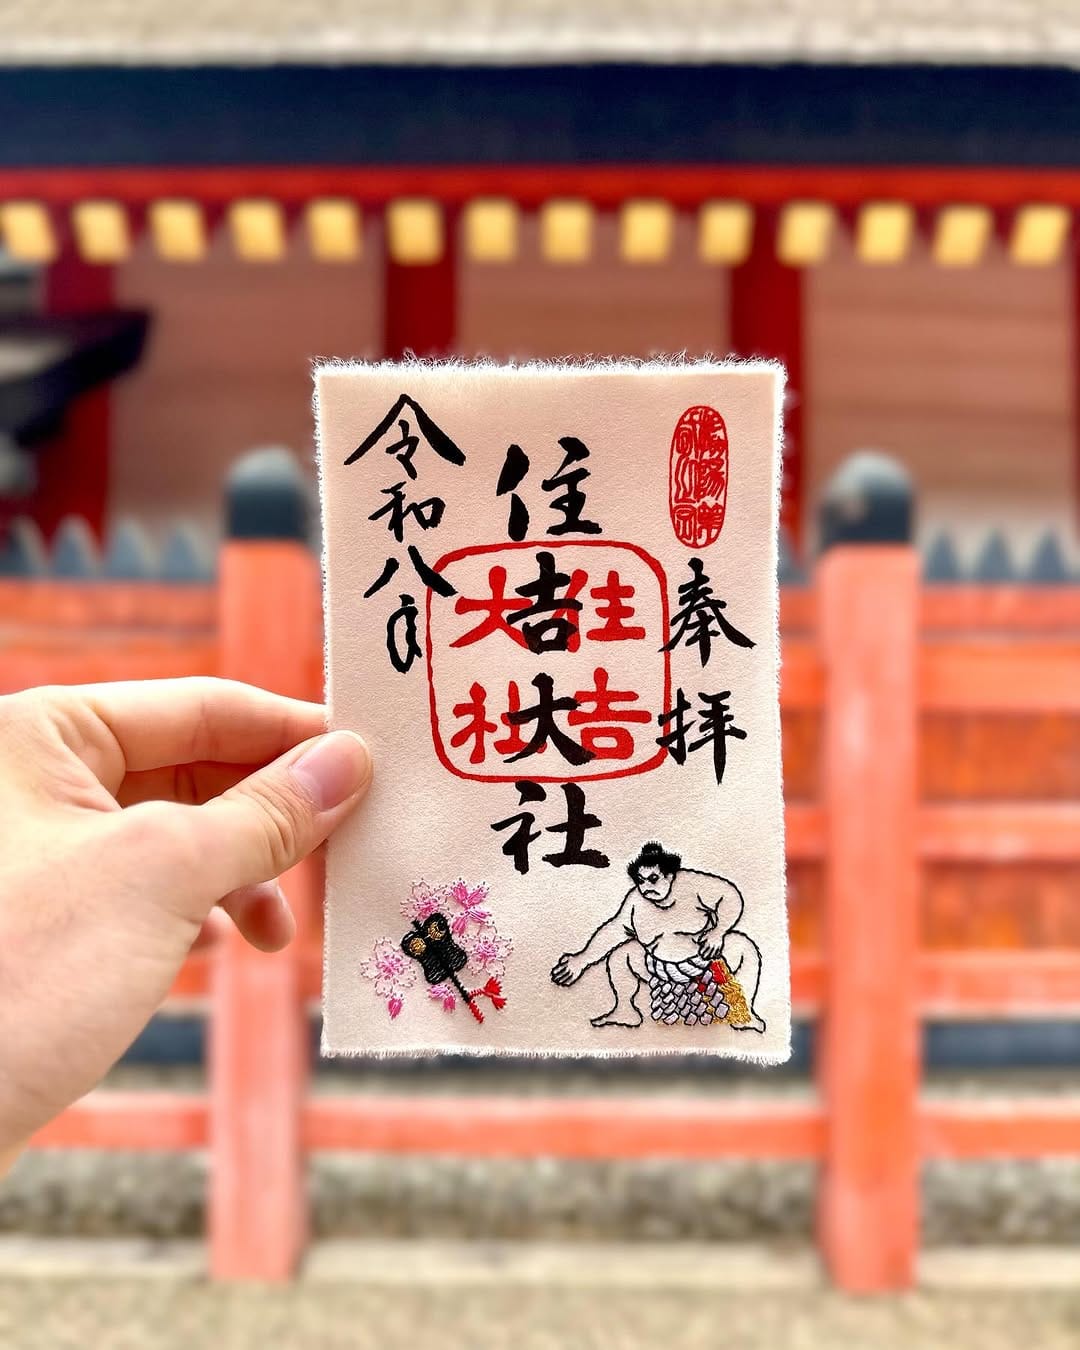 奉拝
住吉大社
住吉
大社
令和八年